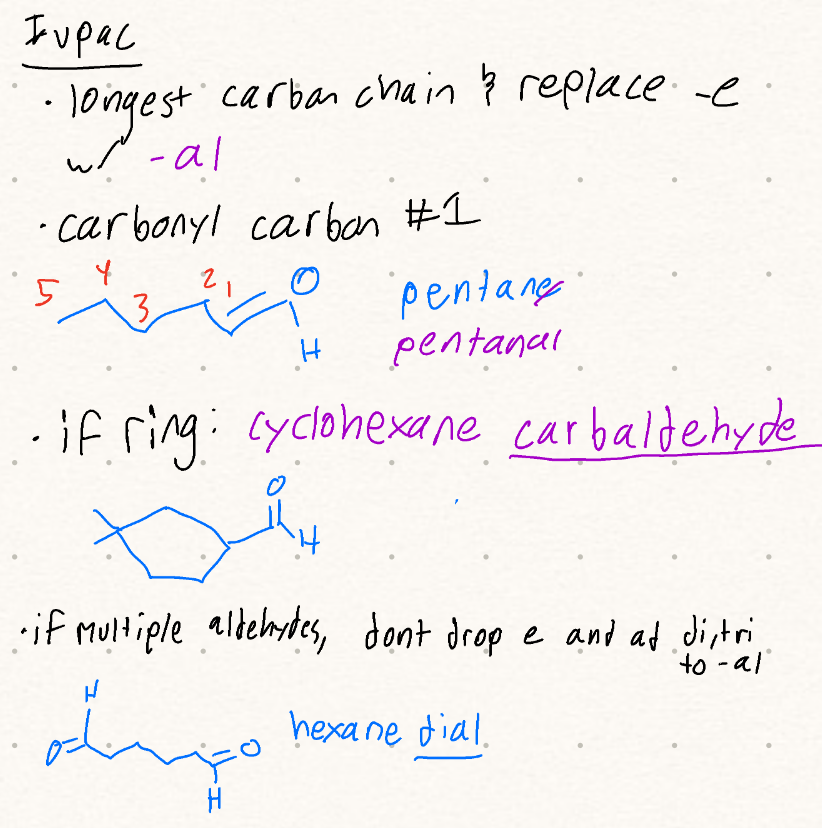 Iupac
· longest carbon chain & replace -e
w/ -al
· carbonyl carbon #1
5 4 3 2 1 O
H
pentane
pentanal
· if ring: cyclohexane carbaldehyde
O
H
· if multiple aldehydes, dont drop e and ad di,tri
to -al
H
O O
H
hexane dial